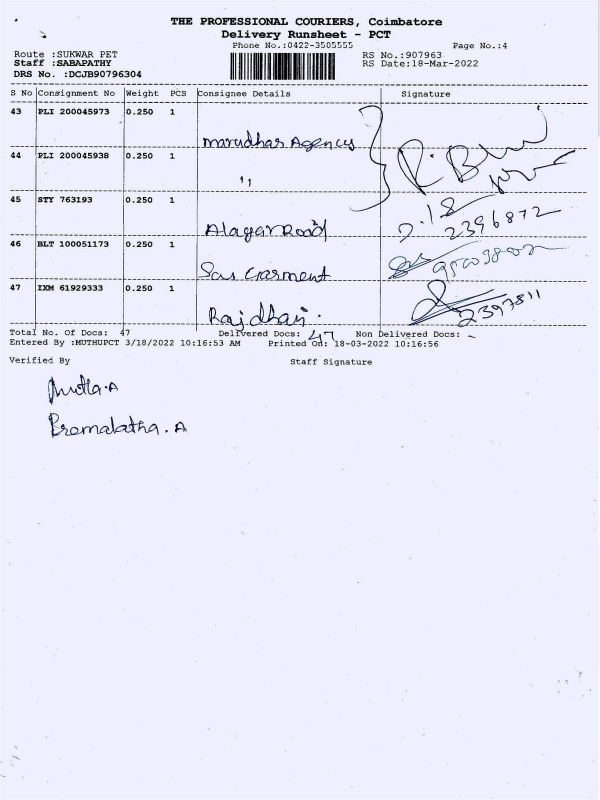 THE PROFESSIONAL COURIERS, Coimbatore
Delivery Runsheet - PCT
Phone No.:0422-3505555 Page No.:4
Route :SUKWAR PET RS No.:907963
Staff :SABAPATHY RS Date:18-Mar-2022
DRS No. :DCJB90796304
S No Consignment No Weight PCS Consignee Details Signature
43 PLI 200045973 0.250 1
marudhar Agency
44 PLI 200045938 0.250 1
"
45 STY 763193 0.250 1
Alagar Road 2396872
46 BLT 100051173 0.250 1
Sai Garment
47 IXM 61929333 0.250 1
Rajdhani. 2397811
Total No. Of Docs: 47 Delivered Docs: 47 Non Delivered Docs: -
Entered By :MUTHUPCT 3/18/2022 10:16:53 AM Printed On: 18-03-2022 10:16:56
Verified By Staff Signature
Premalatha. A